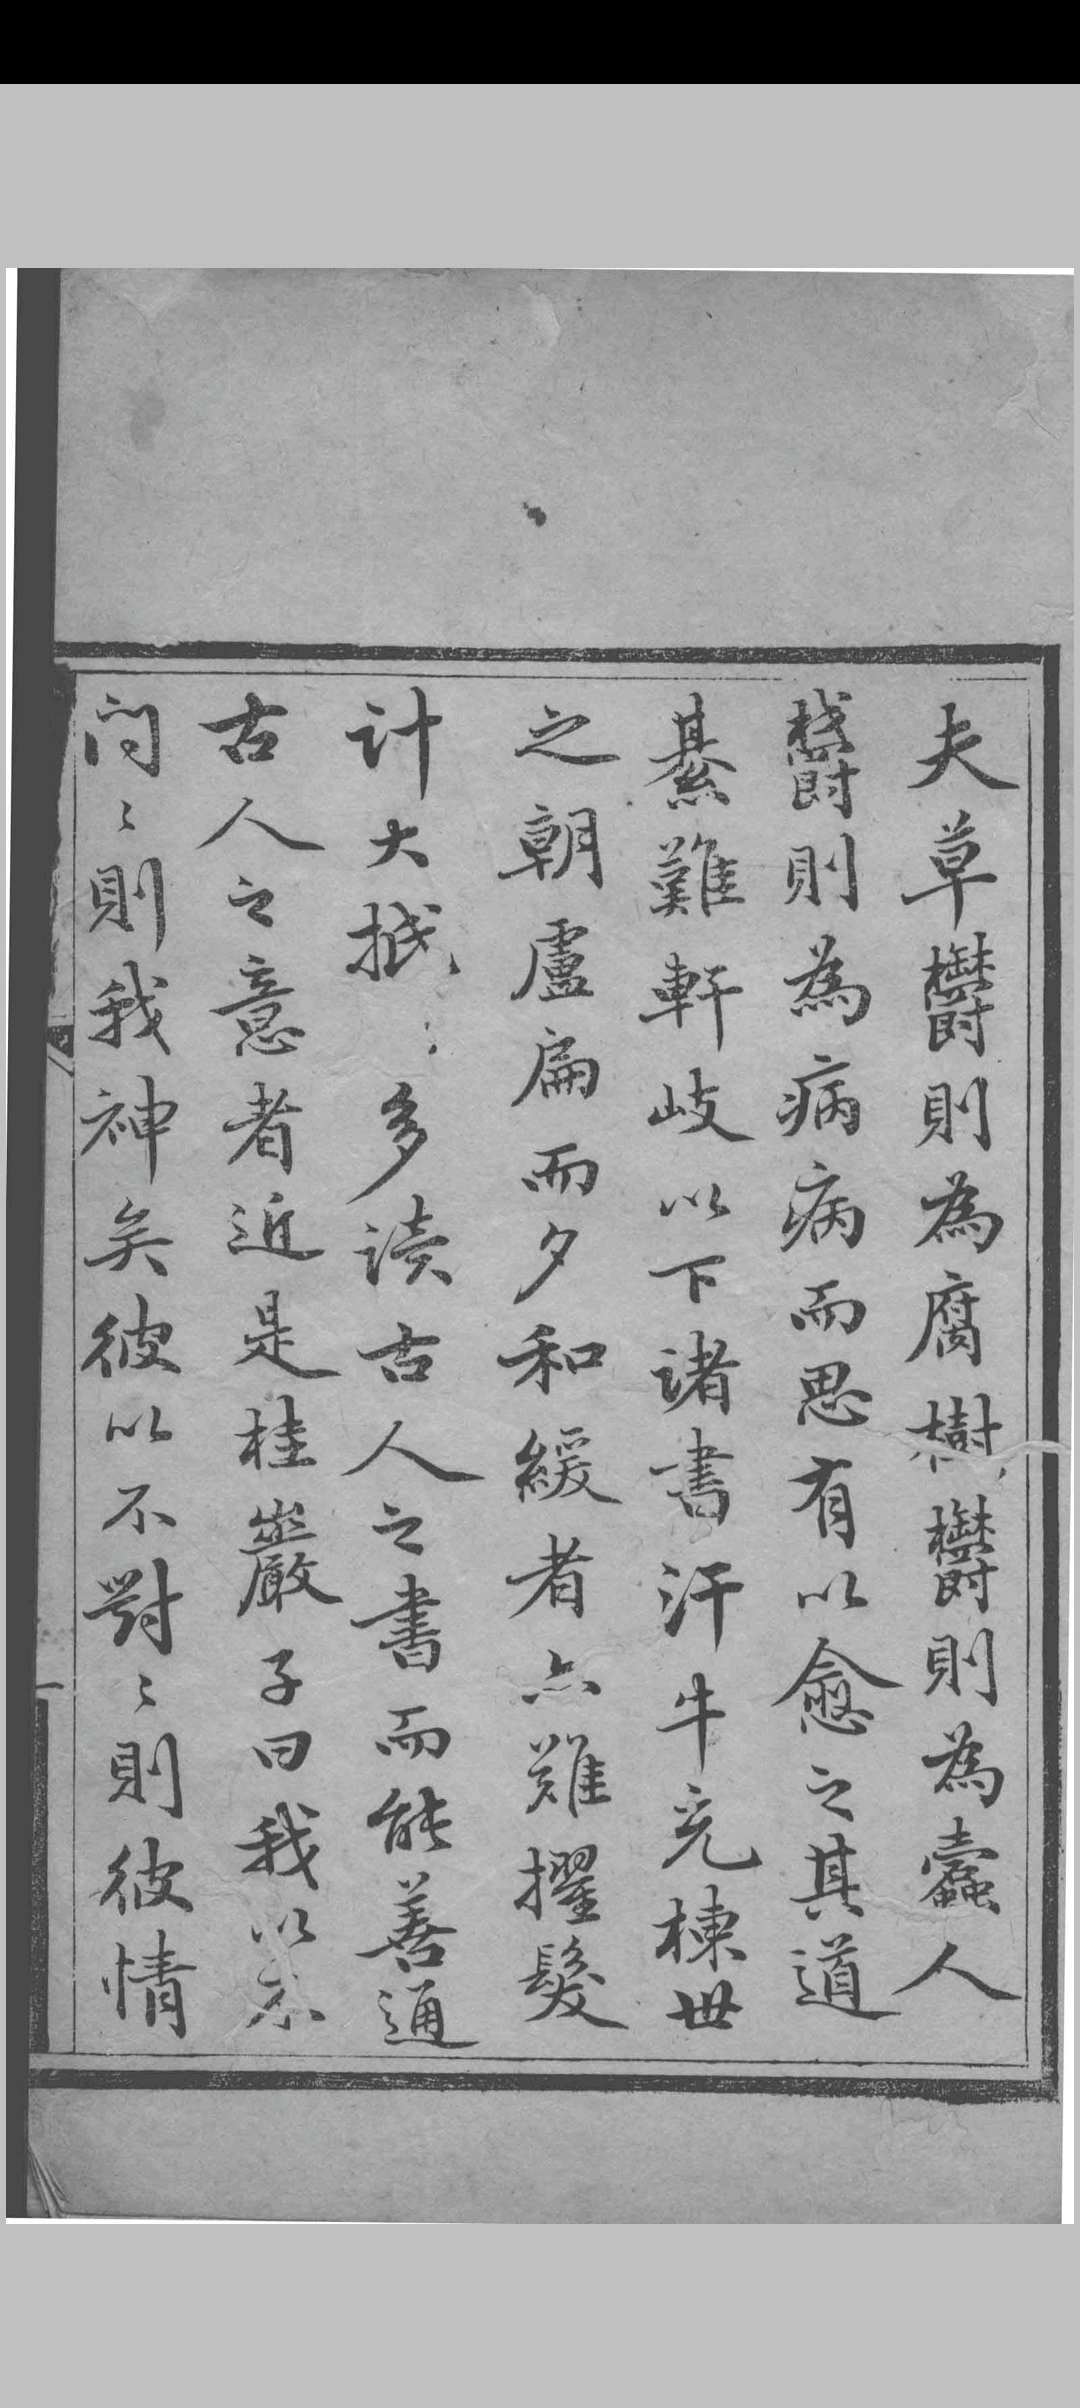 夫草欝則為腐樹欝則為蠹人
欝則為病病而思有以愈之其道
綦難軒岐以下諸書汗牛充棟世
之朝盧扁而夕和緩者亦難擢髮
計大抵多讀古人之書而能善通
古人之意者近是桂巖子曰我以不
问〻則我神矣彼以不對〻則彼情